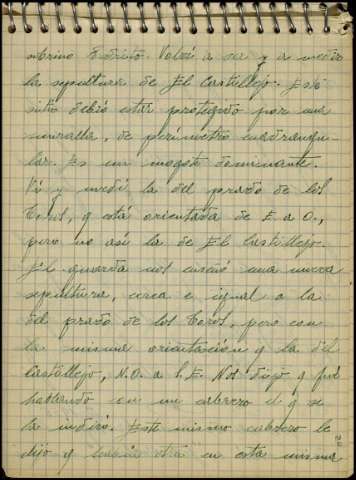 Edicto. Volví a ver y a medir
la sepultura de El Castillejo. Este
sitio debió estar protegido por una
muralla, de perímetro cuadrangu-
lar. Es un mogote dominante.
Vi y medí la del prado de los
Toros, q está orientada de E. a O.,
pero no así la de El Castillejo.
El guarda nos enseñó una nueva
sepultura, cerca e igual a la
del prado de los Toros, pero con
la misma orientación q la del
Castillejo, N.O. a S.E. Nos dijo q fué
hablando con un cabrero el q se
la indicó. Este mismo cabrero le
dijo q había otra en esta misma